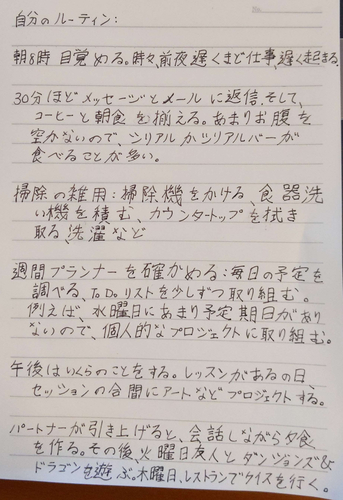 自分のルーティン:
朝8時 目覚める。時々、前夜遅くまで仕事、遅く起まる。
30分ほどメッセージとメールに返信。そして、
コーヒーと朝食を揃える。あまりお腹を
空かないので、シリアルかシリアルバーが
食べることが多い。
掃除の雑用:掃除機をかける、食器洗
い機を積む、カウンタートップを拭き
取る、洗濯など
週間プランナーを確かめる:毎日の予定を
調べる、To Do リストを少しずつ取り組む。
例えば、水曜日にあまり予定期日があり
ないので、個人的なプロジェクトに取り組む。
午後はいくらのことをする。レッスンがあるの日、
セッションの合間にアートなどプロジェクトする。
パートナーが引き上げると、会話しながら夕食
を作る。その後、火曜日友人とダンジョンズ&
ドラゴンを遊ぶ。木曜日、レストランでクイズを行く。